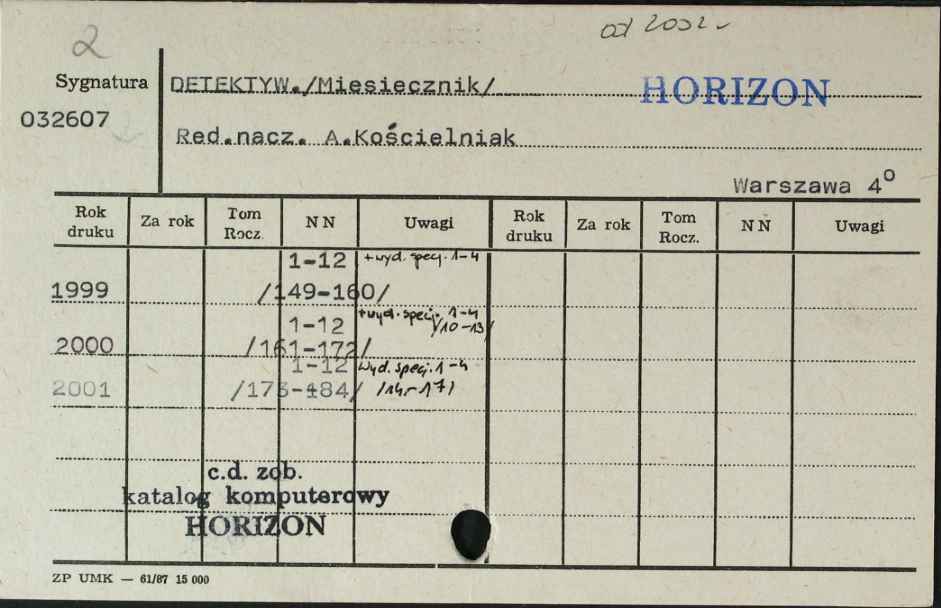 2
od 2002
Sygnatura
032607
DETEKTYW./Miesiecznik/
HORIZON
Red.nacz. A.Kościelniak
Warszawa 4°
Rok druku Za rok Tom Rocz. NN Uwagi Rok druku Za rok Tom Rocz. NN Uwagi
1-12 +wyd. specj. 1-4
1999 /149-160/
1-12 +wyd. specj. 1-4
/10-13/
2000 /161-172/
1-12 wyd. specj. 1-4
2001 /173-184/ /14-17/
c.d. zob.
katalog komputerowy
HORIZON
ZP UMK — 61/87 15 000